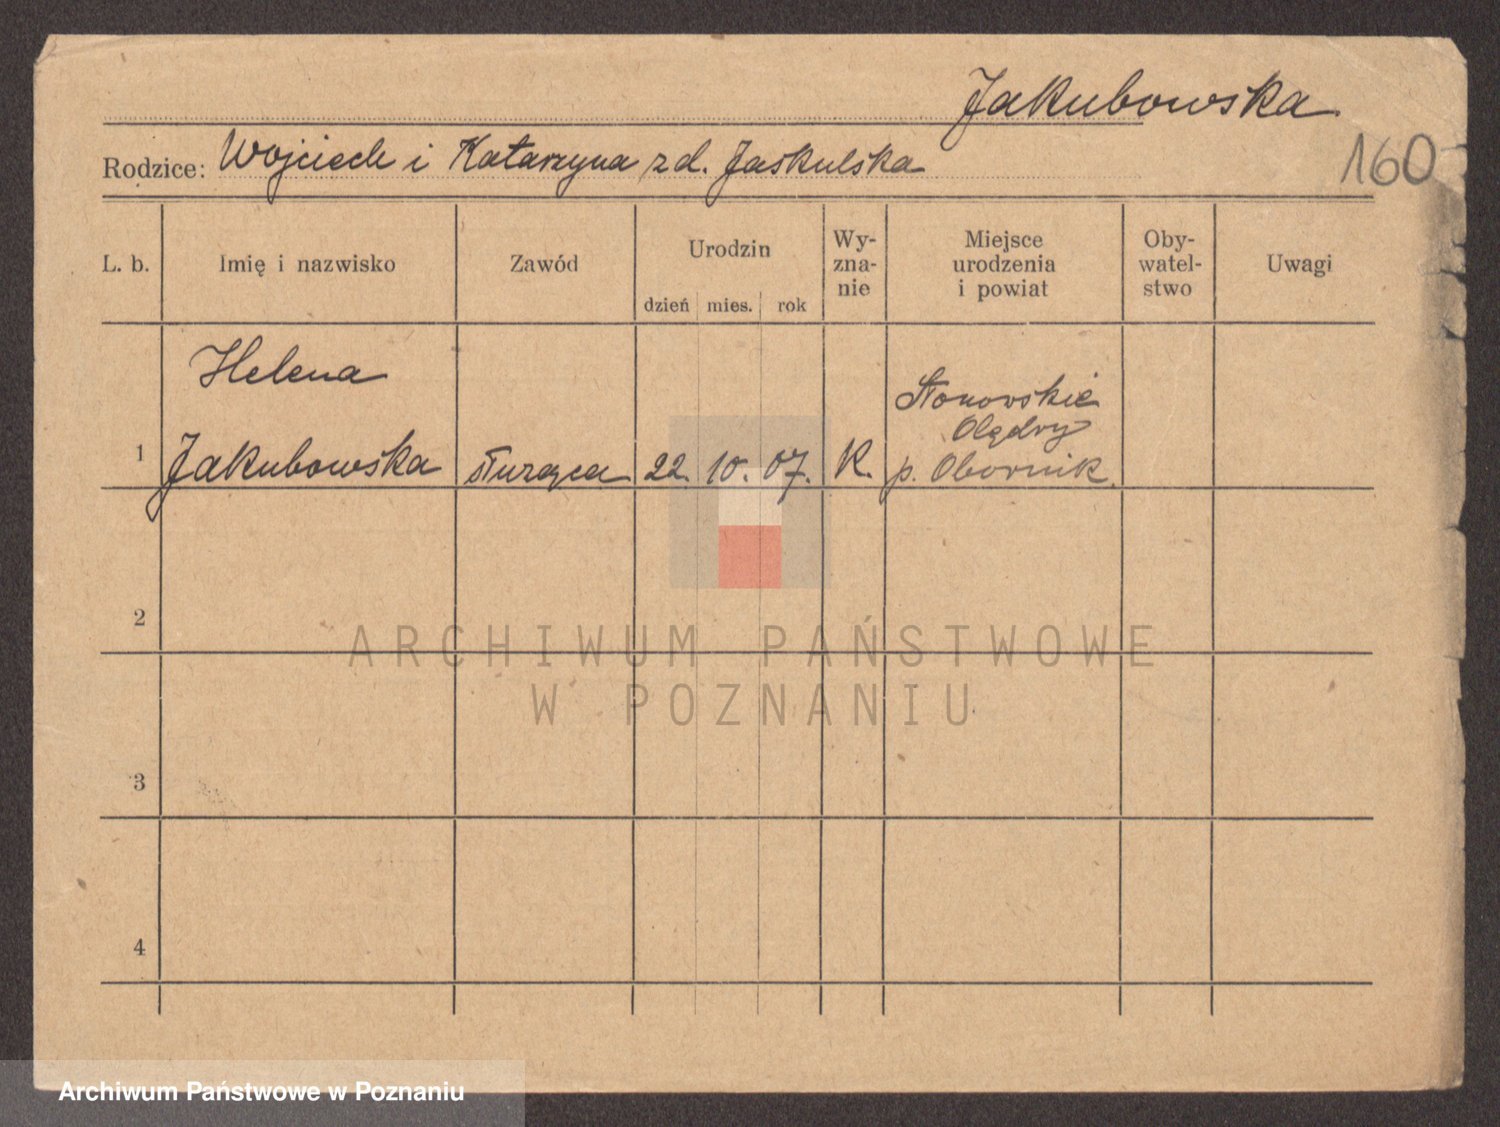 Jakubowska
160
Rodzice: Wojciech i Katarzyna z d. Jaskulska
L. b.
Imię i nazwisko
Zawód
Urodzin
dzień mies. rok
Wy-
zna-
nie
Miejsce
urodzenia
i powiat
Oby-
watel-
stwo
Uwagi
Helena
Jakubowska
1
służąca
22. 10. 07.
K.
Olędry
p. Obornik
2
3
4
ARCHIWUM PAŃSTWOWE
W POZNANIU
Archiwum Państwowe w Poznaniu